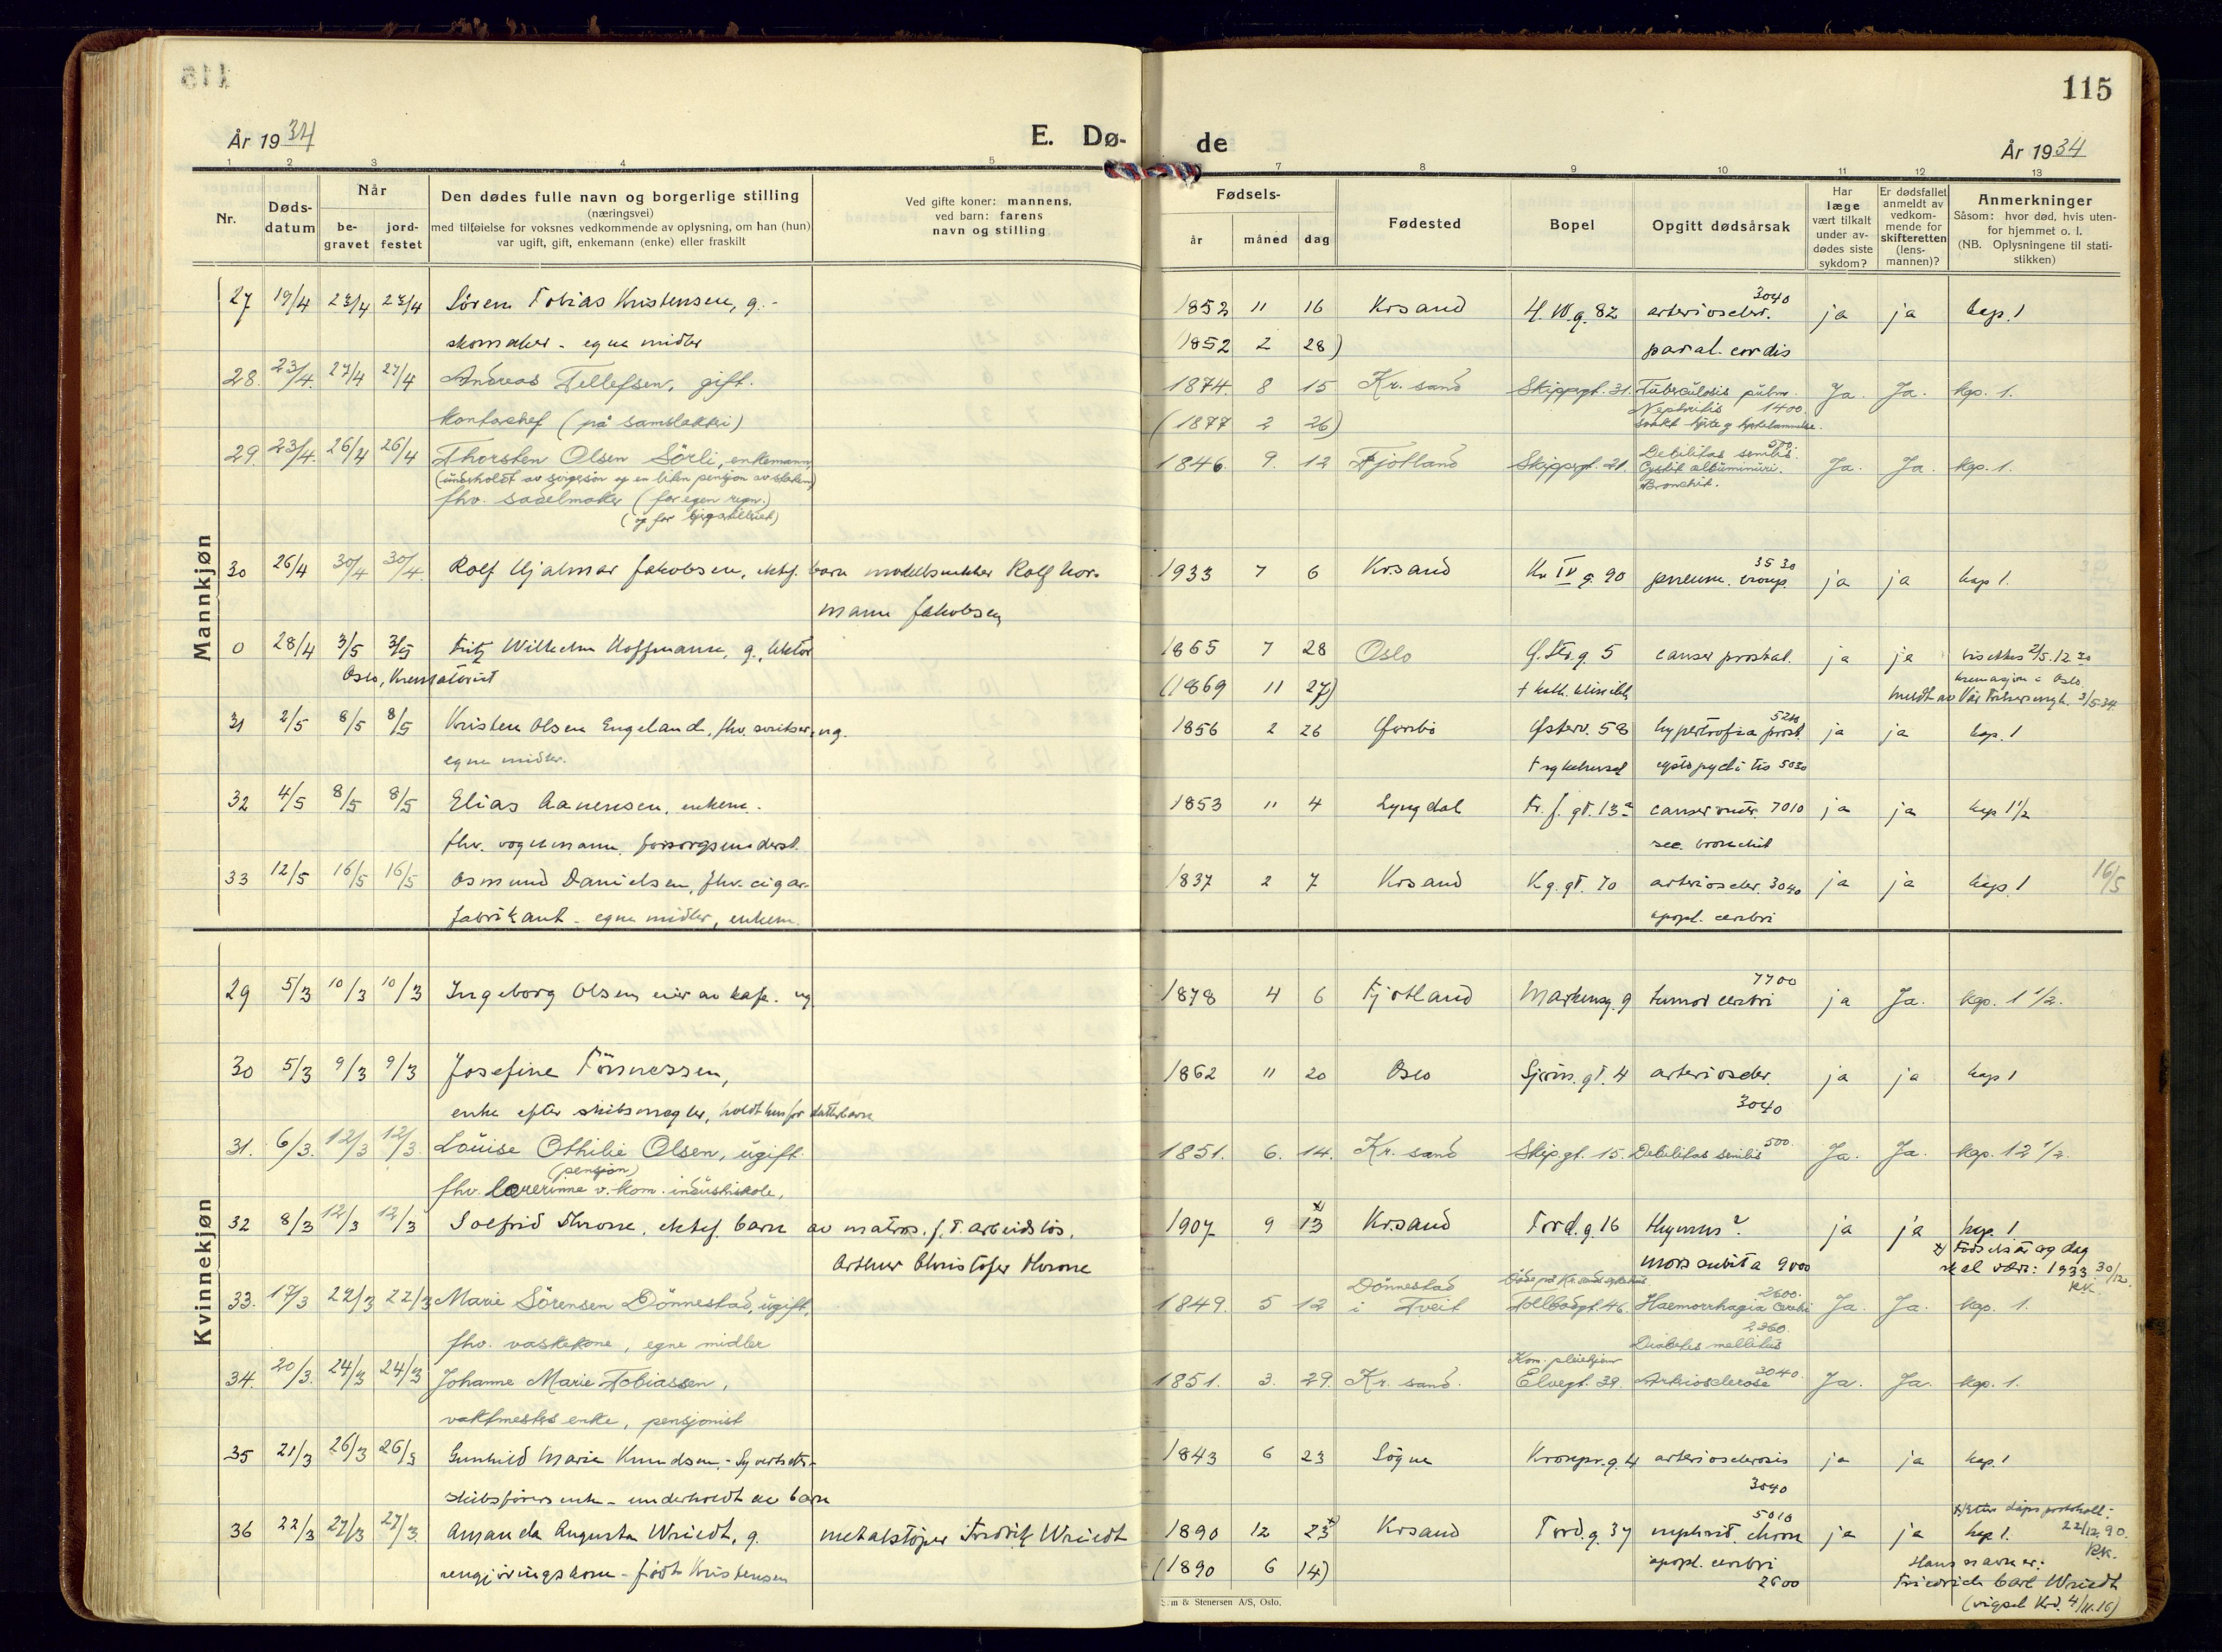 115
År 1934
E. Dø-
de
År 1934
1 2 3 4 5 7 8 9 10 11 12 13
Nr.
Døds-
datum
Når
be-
gravet
jord-
festet
Den dødes fulle navn og borgerlige stilling
(næringsvei)
med tilføielse for voksnes vedkommende av oplysning, om han (hun)
var ugift, gift, enkemann (enke) eller fraskilt
Ved gifte koner: mannens,
ved barn: farens
navn og stilling
Fødsels-
år måned dag
Fødested
Bopel
Opgitt dødsårsak
Har
læge
vært tilkalt
under av-
dødes siste
sykdom?
Er dødsfallet
anmeldt av
vedkom-
mende for
skifteretten
(lens-
mannen)?
Anmerkninger
Såsom: hvor død, hvis uten-
for hjemmet o. l.
(NB. Oplysningene til stati-
stikken)
Mannkjøn
27 19/4 23/4 23/4 Sören Tobias Kristensen, g. - 1852 11 16 Krsand H. VII. g. 82 arterioscler. 3040 ja ja kap. 1
skomaker - egne midler (1852 2 28) paral. cordis
28. 23/4. 27/4 27/4 Andreas Tellefsen, gift. 1874. 8 15 Kr. sand Skippergt. 31. Tuberculosis pulm. Ja. Ja. kap. 1.
kontorchef (på samlakkri) (1877 2 26) Nephritis 1400.
29. 23/4. 26/4 26/4 Thorsten Olsen Sörli, enkemann, 1846. 9. 12 Fjotland Skippergt. 21. Debilitas senilis. 500. Ja. Ja. kap. 1.
(underholdt av svigesön og en liten pensjon av staten) Cystit albuminuri.
fhv. sadelmaker (for egen regn.) Bronchit.
(og for bjergartilleriet)
30 26/4 30/4 30/4. Rolf Hjalmar Jakobsen, ektef. barn modellsnekker Rolf Nor- 1933 7 6 Krsand Kr. IV g. 90 pneum. croup. 3530 ja ja kap 1.
mann Jakobsen
0 28/4 3/5 3/5 Fritz Wilhelm Hoffmann, g., lektor 1865 7 28 Oslo G. Str. g. 5 cancer prostat. ja ja bisettes 2/5. 12.30
Oslo, Krematoriet (1869 11 27) † kath. klinikk kremasjon i Oslo.
meldt av Vår Frelsersmgh. 3/5-34
31 2/5 8/5 8/5 Kristen Olsen Engeland, fhv. ug. 1856 2 26 Østerv. 58 hypertrofia prost. ja ja kap. 1
egne midler. † sykehuset 5030
32 4/5 8/5 8/5 Elias Aanensen, enkem. 1853 11 4 Lyngdal Fr. f. gt. 13a cancer ventr. 7010 ja ja kap 1 1/2
fhv. vognmann, forsorgsunderst. sec. bronchit
33 12/5 16/5 16/5 Osmund Danielsen, fhv. cigar- 1837 2 7 Krsand Kg. gt. 70 arterioscler. 3040 ja ja kap 1 16/5
fabrikant - egne midler, enkem. apopl. cerebri
Kvinnekjøn
29 5/3 10/3 10/3 Ingeborg Olsen, eier av kafe. ug. 1878 4 6 Fjotland Markensg. 9 tumor cerebri 7700 ja Ja. kap. 1 1/2.
30 5/3 9/3 9/3 Josefine Tönnessen, 1862 11 20 Oslo Sjöm. gt. 4 arterioscler. ja ja kap 1
enke efter skibsmegler, holdt hus for datterbarn 3040
31. 6/3. 12/3 12/3. Louise Othilie Olsen, ugift. 1851. 6. 14. Kr. sand Skip.gt. 15. Debilitas senilis 500. Ja. Ja. kap. 12 1/2.
(pensjon)
fhv. lærerinne v. kom. industriskole,
32 8/3 12/3 12/3 Solfrid Throne, ektef. barn av matros, f. T. arbeidslös, 1907 9 13 x) Krsand Tord. g. 16 thymus? ja ja kap. 1.
Arthur Christofer Throne mors subita 9000 x) Födselsår og dag
skal være: 1933 30/12.
KK.
33. 17/3 22/3 22/3 Marie Sörensen Dönnestad, ugift, 1849. 5 12 Dönnestad
i Tveit Tollbodgt. 46. Haemorrhagia cerebri 2600. Ja. Ja. kap. 1.
fhv. vaskekone, egne midler 2360.
Diabetes mellitus
34. 20/3. 24/3 24/3 Johanne Marie Tobiassen, 1851. 3. 29. Kr. sand. Kom. pleiehjem
Elvegt. 39. Arteriosclerose 3040. Ja. Ja. kap. 1.
vaktmesters enke, pensjonist
35 21/3 26/3 26/3 Gunhild Marie Knudsen, - Syvertsdtr- 1843 6 23 Sögne Kronpr. g. 4 arteriosclerosis ja ja kap. 1
skibsförers enke - underholdt av barn 3040
36 22/3 27/3 27/3. Amanda Augusta Wriedt, g. metalstöper Fredrik Wriedt 1890 12 23 x) Krsand Tord. g. 37 nephrit. chron 5010 ja ja kap 1.
x) Efter dåpsprotokoll:
22/12. 90.
KK.
rengjöringskone - födt Kristensen (1890 6 14) apopl. cerebri
2600
Hans navn er:
Friedrich Carl Wriedt
(vigsel Krs. 4/11.16)
& Stenersen A/S, Oslo.